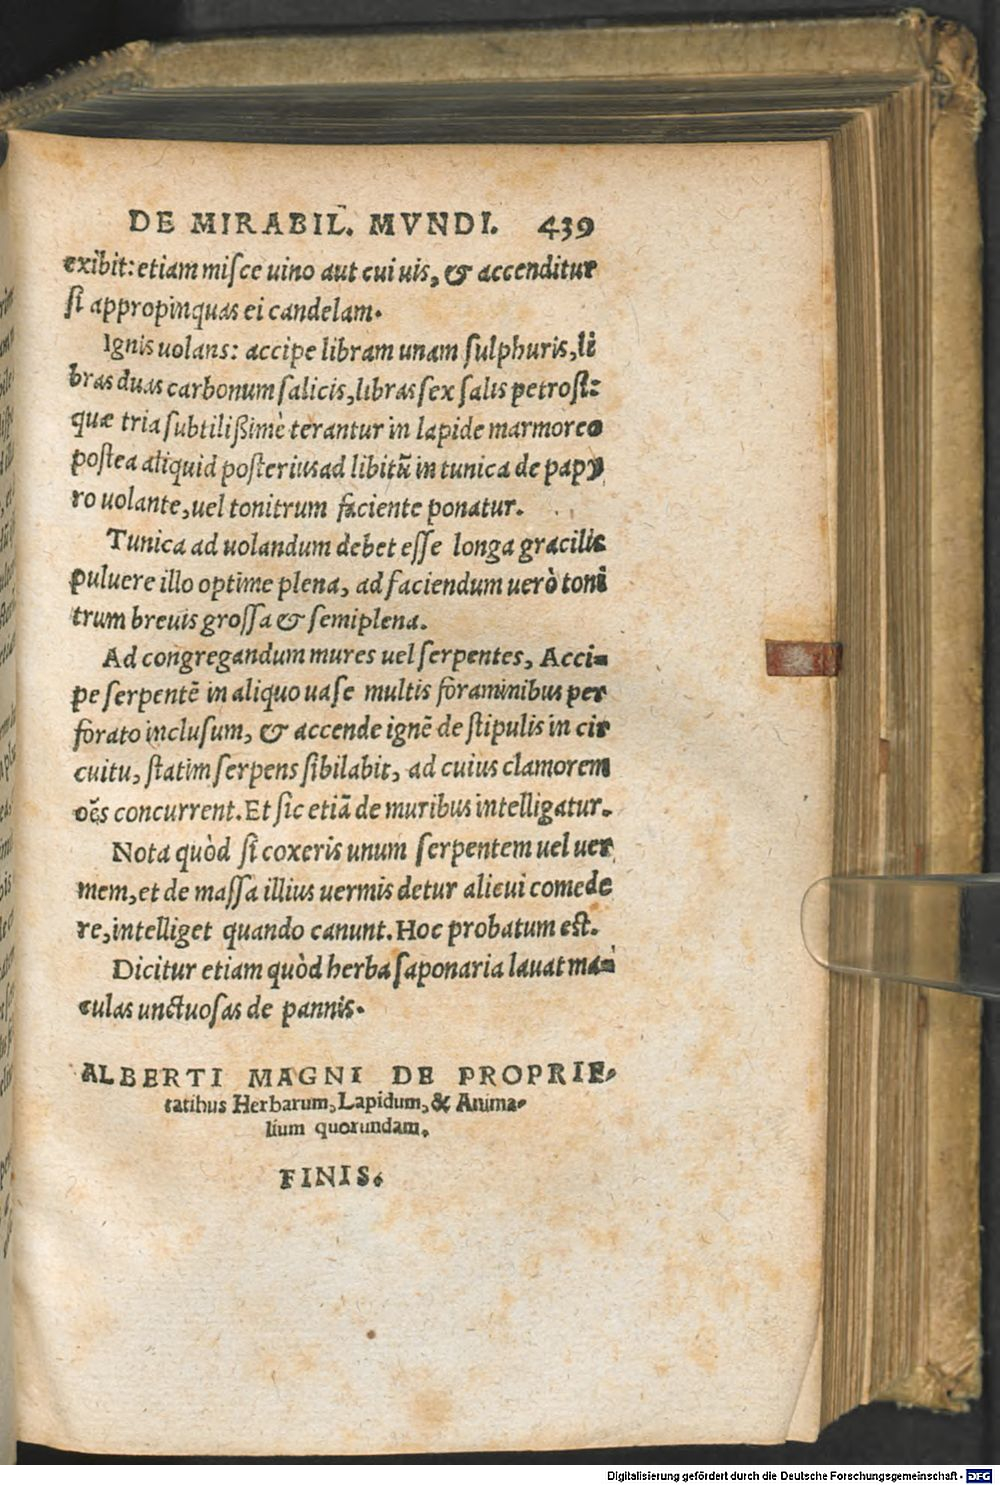 DE MIRABIL. MVNDI. 439
exibit: etiam misce uino aut cui uis, & accenditur
si appropinquas ei candelam.
Ignis uolans: accipe libram unam sulphuris, li
bras duas carbonum salicis, libras sex salis petrosi:
quæ tria subtilißimè terantur in lapide marmoreo
postea aliquid posterius ad libitū in tunica de papy
ro uolante, uel tonitrum faciente ponatur.
Tunica ad uolandum debet esse longa gracilis
puluere illo optime plena, ad faciendum uerò toni
trum breuis grossa & semiplena.
Ad congregandum mures uel serpentes, Acci-
pe serpentē in aliquo uase multis foraminibus per
forato inclusum, & accende ignē de stipulis in cir
cuitu, statim serpens sibilabit, ad cuius clamorem
oēs concurrent. Et sic etiā de muribus intelligatur.
Nota quòd si coxeris unum serpentem uel uer
mem, et de massa illius uermis detur alicui comede
re, intelliget quando canunt. Hoc probatum est.
Dicitur etiam quòd herba saponaria lauat ma-
culas unctuosas de pannis.
ALBERTI MAGNI DE PROPRIE-
tatibus Herbarum, Lapidum, & Anima-
lium quorundam.
FINIS.
Digitalisierung gefördert durch die Deutsche Forschungsgemeinschaft - DFG